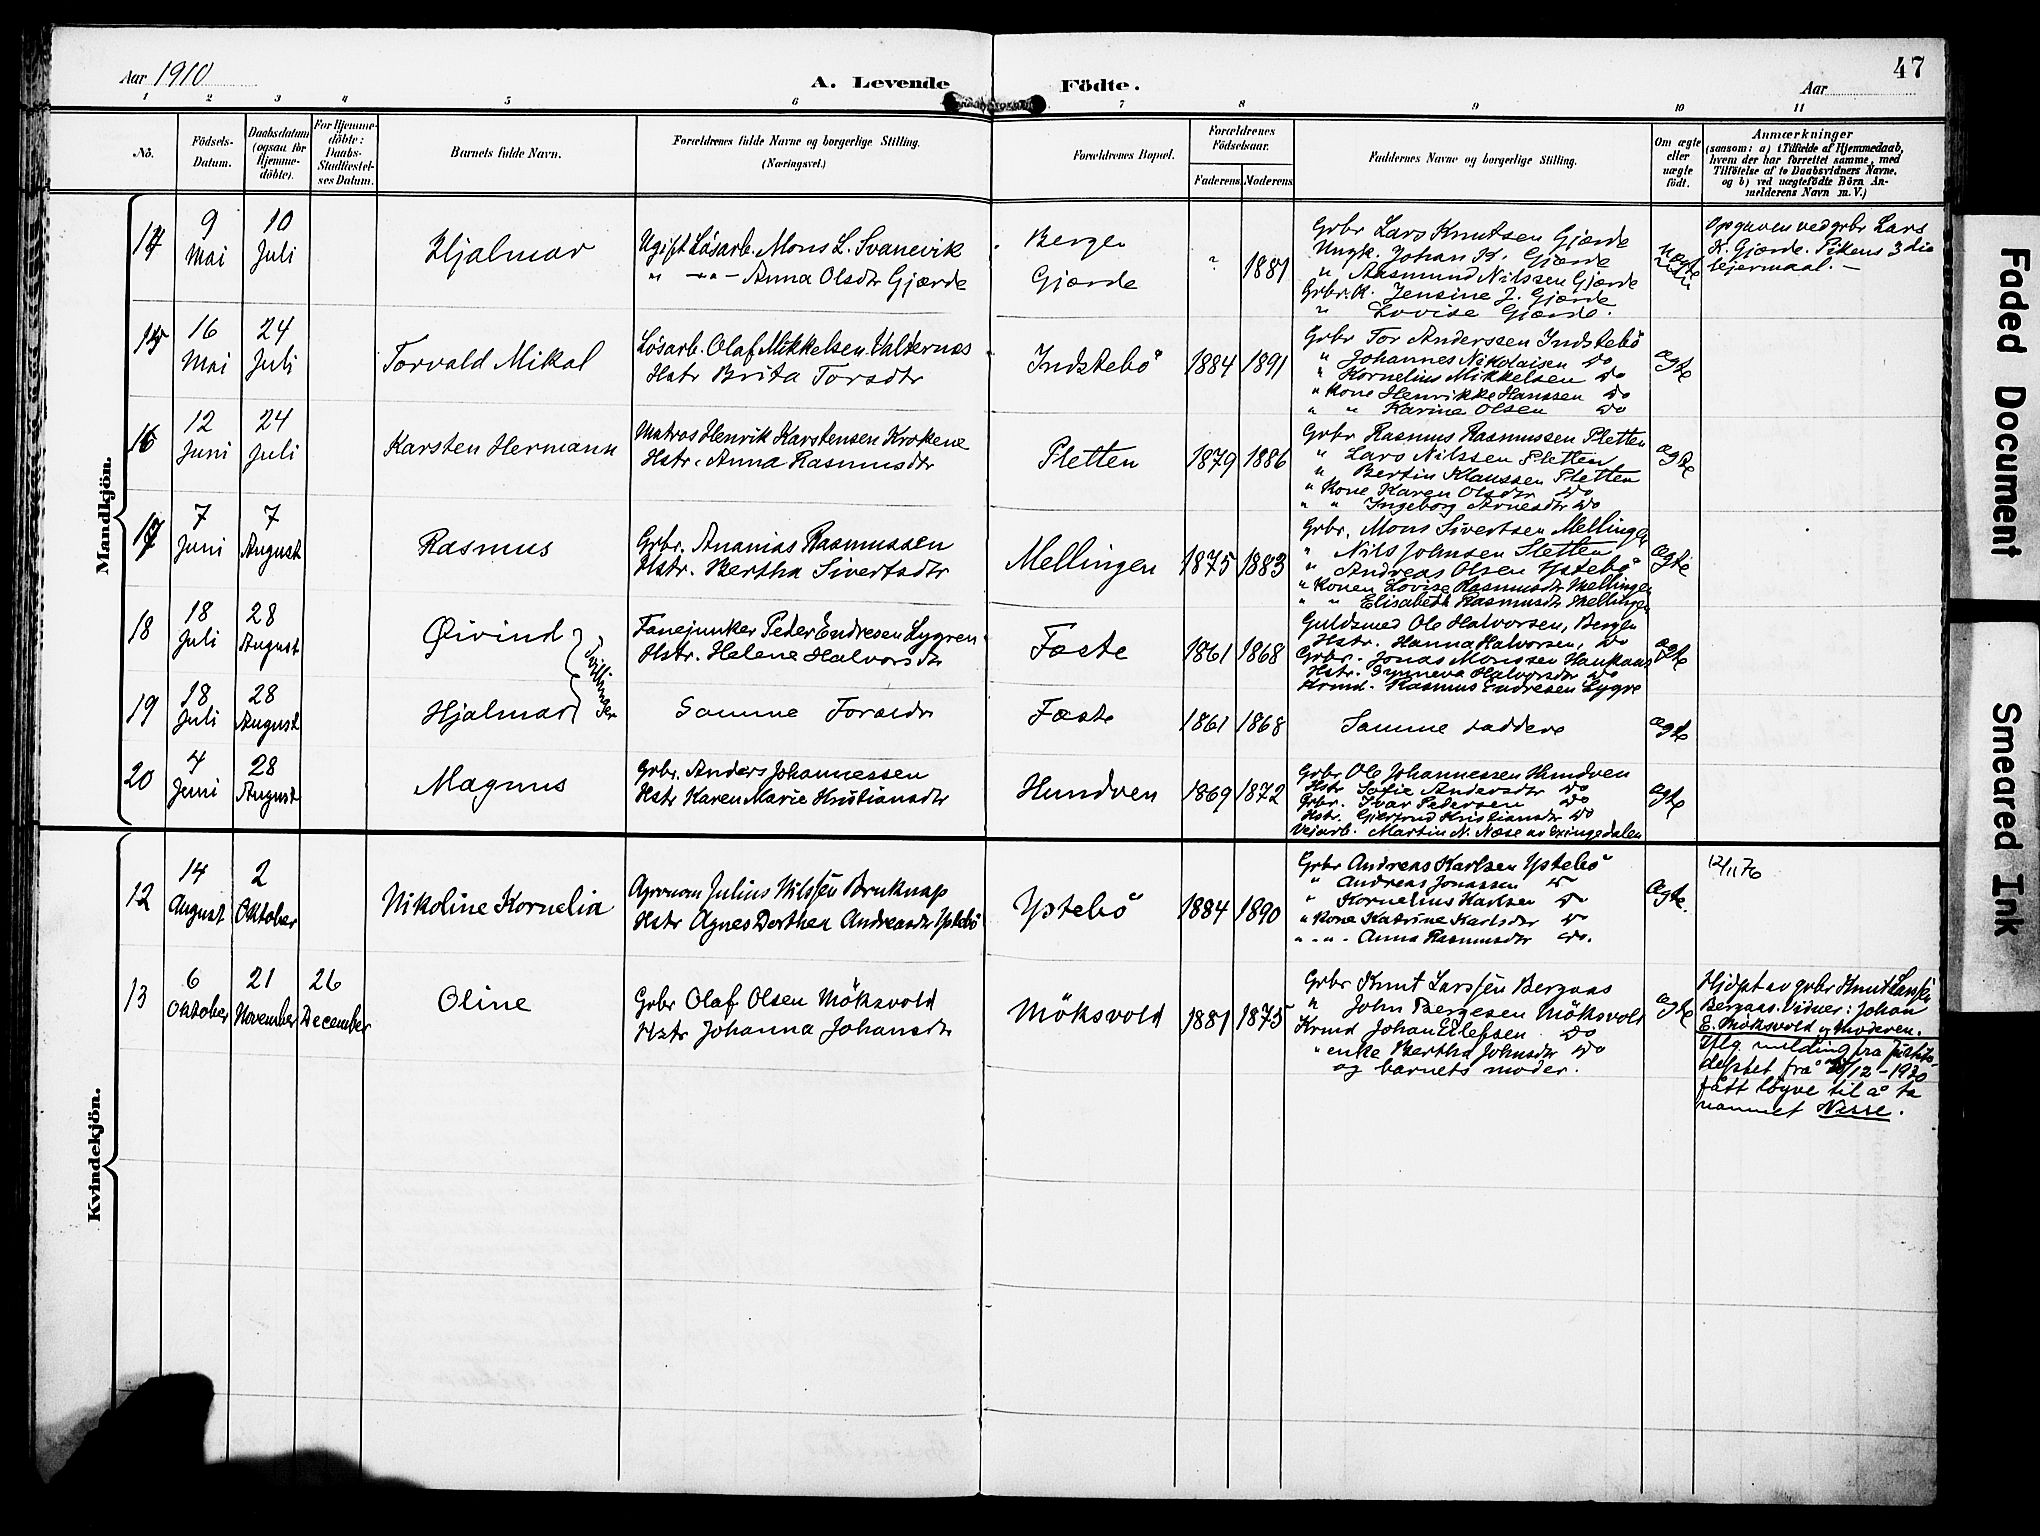 Aar 1910
A. Levende Födte.
Aar
47
1 2 3 4 5 6 7 8 9 10 11
No.
Födsels-Datum.
Daabsdatum (ogsaa for Hjemme-döbte).
For Hjemme-döbte: Daabs-Stadfæstel-ses Datum.
Barnets fulde Navn.
Forældrenes fulde Navne og borgerlige Stilling.
(Næringsvei.)
Forældrenes Bopæl.
Forældrenes Födselsaar.
Faderens. Moderens.
Faddernes Navne og borgerlige Stilling.
Om ægte eller uægte födt.
Anmærkninger
(saasom: a) i Tilfælde af Hjemmedaab, hvem der har forrettet samme, med Tilföielse af to Daabsvidners Navne, og b) ved uægtefödte Börn An-melderens Navn m. V.)
Mandkjön.
14
9 Mai
10 Juli
Hjalmar
Ugift Lösarb. Mons L. Svanevik
" -"- Anna Olsdtr Gjærde
Bergen
Gjærde
?
1881
Grbr Lars Knutsen Gjærde
Ungk. Johan K. Gjærde
" Aasmund Nilssen Gjærde
Grbr.k. Jensine J. Gjærde
" Lovise Gjærde.
Uægte
Opgaven ved grbr Lars
K. Gjærde. Pikens 3die
leiermaal. —
15
16 Mai
24 Juli
Torvald Mikal
Lösarb. Olaf Mikkelsen Valdernes
Hstr Brita Torsdtr
Indstebö
1884 1891
Grbr Tor Anderssen Indstebö
" Johannes Nikolaisen do
" Kornelius Mikkelsen do
" Kone Henrikke Hanssen do
" " Karine Olsen do
ægte
16
12 Juni
24 Juli
Karsten Hermann
Matros Henrik Karstensen Krokene
Hstr. Anna Rasmusdtr
Sletten
1879 1886
Grbr Rasmus Rasmussen Sletten
" Lars Nilssen Sletten
" Bertin Klaussen Sletten
" Kone Karen Olsdtr do
" " Ingeborg Arnesdtr do
ægte
17
7 Juni
7 August
Rasmus
Grbr. Ananias Rasmussen
Hstr. Bertha Sivertsdtr
Mellingen
1875 1883
Grbr. Mons Sivertsen Mellingen
" Nils Johnsen Sletten
" Andreas Olsen Ystebö
" Konen Lovise Rasmusdtr Mellingen
" " Elisabeth Rasmusdtr Mellingen
ægte
18
18 Juli
28 August
Øivind
Tvillinger
Fanejunker Peder Endresen Lygren
Hstr. Helene Halvorsdtr
Fæste
1861 1868
Guldsmed Ole Halvorsen, Bergen
Hstr. Hanna Halvorsen, do
Grbr. Jonas Monssen Haukaas
Hstr. Synneva Halvorsdtr do
Hrmd. Rasmus Endresen Lygre
ægte
19
18 Juli
28 August
Hjalmar
Samme Foræld
Fæste
1861 1868
Samme faddere
ægte
20
4 Juni
28 August
Magnus
Grbr. Anders Johannessen
Hstr Karen Marie Kristiansdtr
Hundven
1869 1872
Grbr Ole Johannessen Hundven
Hstr Sofie Andersdtr do
Grbr. Ivar Pedersen do
Hstr. Gjertrud Kristiansdtr do
Veiarb. Martin N. Næse av Exingedalen
ægte
Kvindekjön.
12
14 August
2 Oktober
Nikoline Kornelia
Julius Nilssen Bruknap
Hstr Agnes Dorthea Andreasdtr Ystebö
Ystebö
1884 1890
Grbr Andreas Karlsen Ystebö
" Andreas Jonassen do
" Kornelius Karlsen do
" Kone Katrine Karlsdtr do
" - " - Anna Rasmusdtr do.
Ægte.
12/11 76
13
6 Oktober
21 November
26 December
Oline
Grbr Olaf Olsen Möksvold
Hstr Johanna Johansdtr
Möksvold
1881 1875
Grbr Knut Larssen Bergaas
" John Bergesen Möksvold
Krmd Johan Eilefsen do
" enke Bertha Johnsdtr do
og barnets moder.
ægte
Hjdøpt av grbr Knut Larssen
Bergaas. Vidner: Johan
E. Möksvold og Moderen.
Iflg melding fra justits-
deptet frå /12-1930
fått löyve til å ta
namnet Nesse.
Faded Document
Smeared Ink